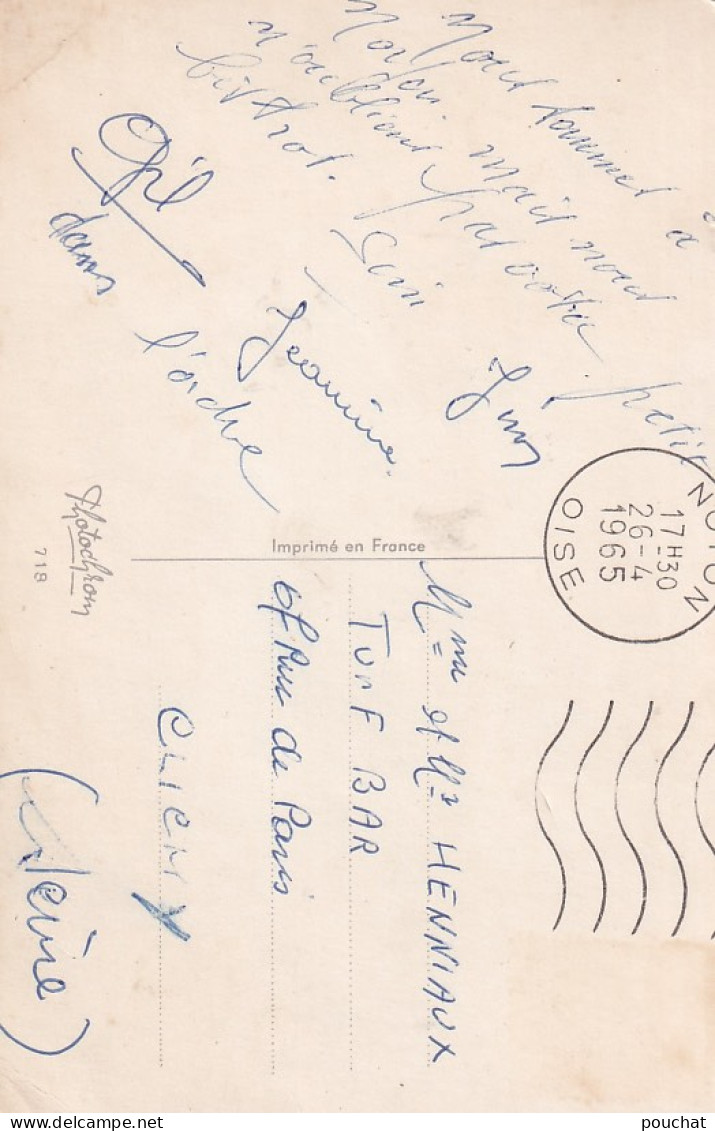 Nous sommes à
Noyon mais nous
n'oublions pas votre petit
bistrot.
Gil
Jeannine
dans l'ordre
Imprimé en France
Photochrom
718
NOYON
17H30
26-4
1965
OISE
Mme et Mr HENNIAUX
TURF BAR
67 Rue de Paris
CLICHY
(Seine)
pouchat